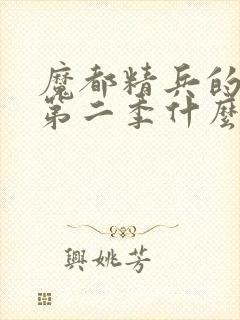 魔都精兵的
第二季什麼
興姚芳